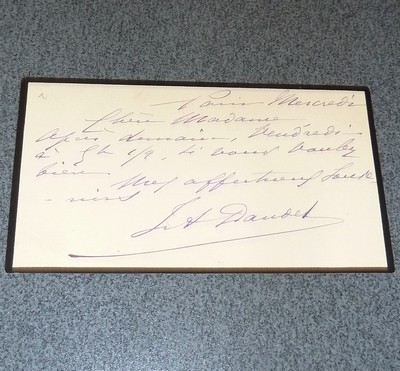 Paris Mercredi
Chère Madame
Après demain, Vendredi
à 5h 1/2, si vous voulez
bien
Mes affectueux souve
- nirs
Daudet